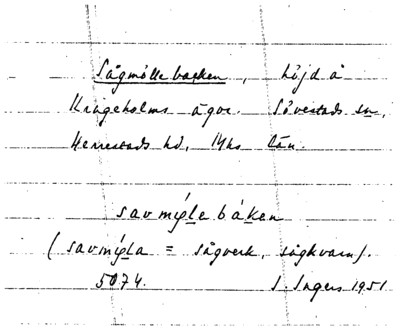 Sågmöllebacken, höjd å
Krageholms ägor. Sövestads sn,
Herrestads hd, Mhs län.
savmỳlebáken
(savmỳla = sågverk, sågkvarn).
5074. S. Ingers 1951